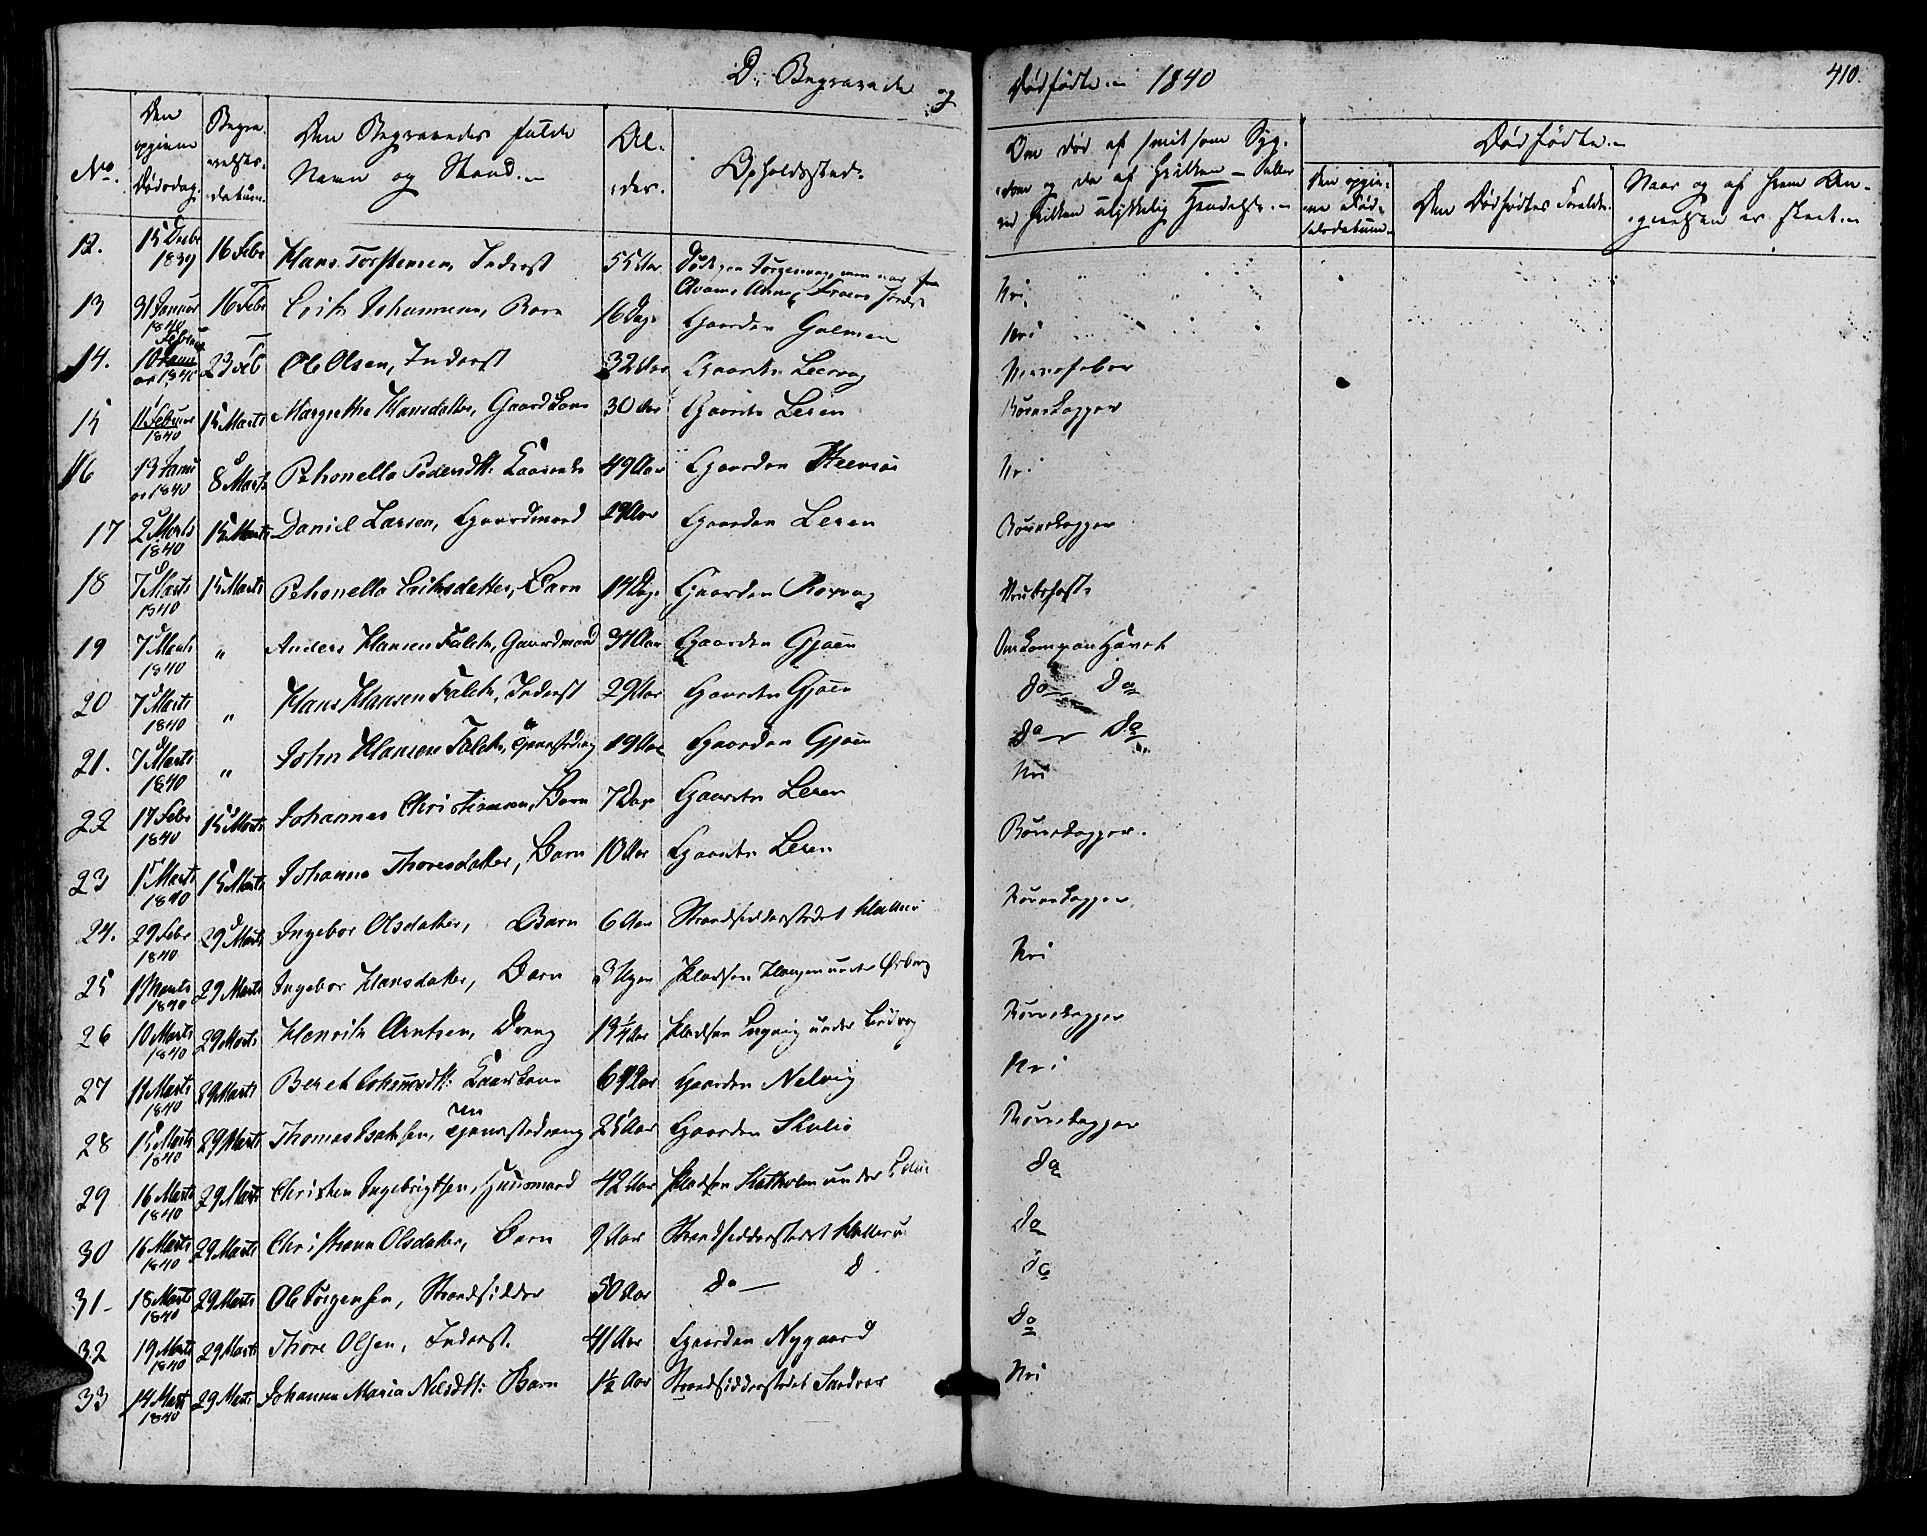 D. Begravede og Dødfødte. 1840
410.
No.
Den opgivne Dødsdag.
Begravelsesdatum.
Den Begravedes fulde Navn og Stand.
Alder.
Opholdssted.
Om død af smitsom Sygdom og da af hvilken — eller ved hvilken ulykkelig Hendelse.
Dødfødte.
Den opgivne Fødselsdatum.
Den Dødfødtes Foreldre.
Naar og af hvem Angivelsen er skeet.
12. 15 Decbr 1839 16 Febr Hans Torstensen, Inderst 55 Aar
Nei
13 31 Januar 1840 16 Febr Erik Johannesen, Barn 16 Dage Gaarden Galmen
Nei
14. 10 Februar 1840 23 Feb Ole Olsen, Inderst 32 Aar Gaarden Leervog
Nervefeber
15 11 Februar 1840 15 Marts Margrethe Hansdatter, Gaardkone 30 Aar Gaarden Leren
Børnekopper
16 13 Januar 1840 8 Marts Petronelle Pedersdtr: 49 Aar Gaarden
Nei
17 2 Marts 1840 15 Marts Daniel Larsen, Gaardmand 29 Aar Gaarden Leren
Børnekopper
18 7 Marts 1840 15 Marts Petronella Eriksdatter, Barn 14 Dage Gaarden Roxvog
19 7 Marts 1840 " Anders Hansen Falch, Gaardmand 34 Aar Gaarden Gjøen
Omkom paa Havet
20 7 Marts 1840 " Hans Hansen Falch, Inderst 29 Aar Gaarden Gjøen
do — do
21. 7 Marts 1840 " John Hansen Falch, Tjenestedreng 19 Aar Gaarden Gjøen
do — do
22 17 Febr 1840 15 Marts Johannes Christiansen, Barn 7 Dage Gaarden Leren
Nei
23 1 Marts 1840 15 Marts Johanna Thoresdatter, Barn 10 Aar Gaarden Leren
Børnekopper.
24. 29 Febr 1840 29 Marts Ingebor Olsdatter, Barn 6 Aar Strandsidderstedet
Børnekopper
25 1 Marts 1840 29 Marts Ingebor Hansdatter, Barn 3 Uger Pladsen under
Nei
26 10 Marts 1840 29 Marts Henrik Arntsen, Dreng 13 1/4 Aar Pladsen under
Børnekopper
27 11 Marts 1840 29 Marts Beret 69 Aar Gaarden Nelvig
Nei
28 15 Marts 1840 29 Marts Thomas Isaksen, Tjenestedreng 25 Aar Gaarden
Børnekopper
29 16 Marts 1840 29 Marts Christen Ingebrigtsen, Huusmand 42 Aar Pladsen under
do
30 16 Marts 1840 29 Marts Christiana Olsdatter, Barn 9 Aar Strandsidderstedet
do
31 18 Marts 1840 29 Marts Ole Jørgensen, Strandsidder 50 Aar do —
do
32 19 Marts 1840 29 Marts Thore Olsen, Inderst. 41 Aar Gaarden Nygaard
do
33 14 Mart 1840 29 Marts Johanna Maria Nilsdtr: Barn 1 1/2 Aar Strandsidderstedet
Nei